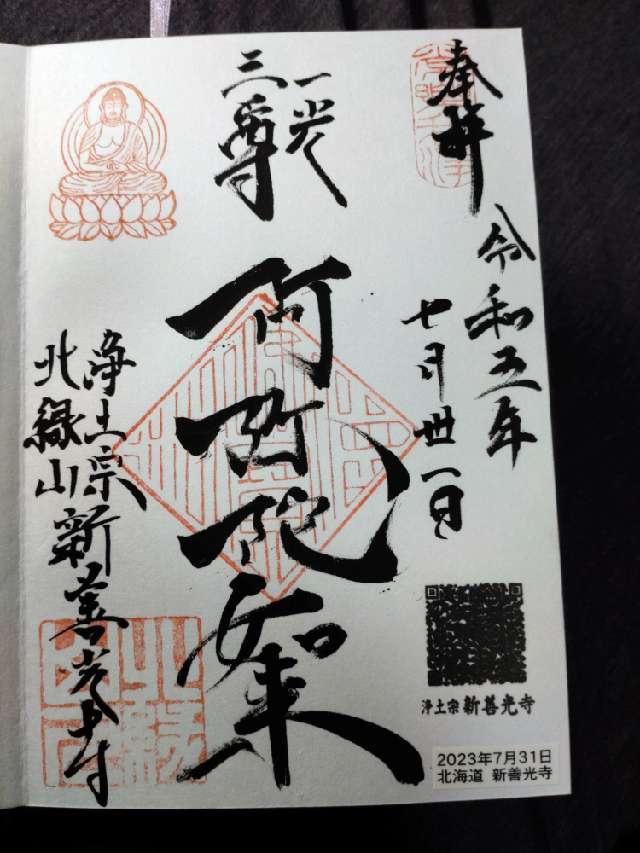 奉拝
令和五年
七月卅一日
一光
三尊
阿弥陀如来
浄土宗
北緑山新善光寺
浄土宗 新善光寺
2023年7月31日
北海道 新善光寺